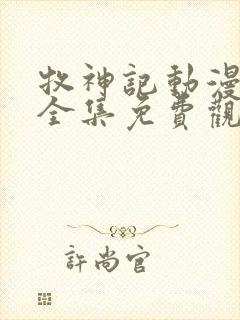 牧神記動漫
全集免費觀
許尚官